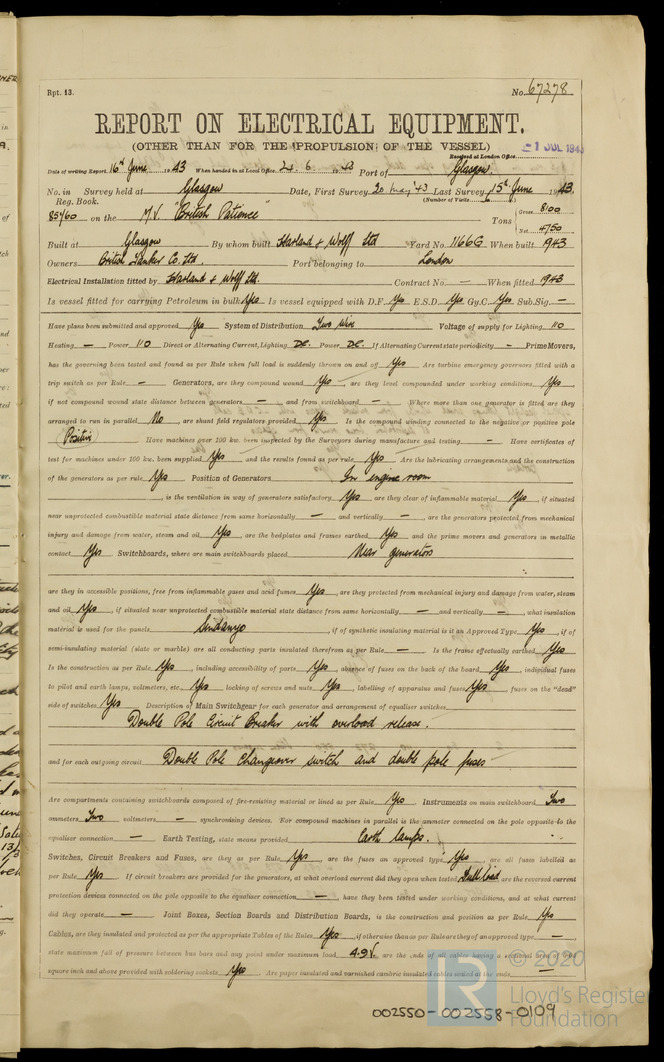 Rpt. 13.
No. 67278
REPORT ON ELECTRICAL EQUIPMENT.
(OTHER THAN FOR THE PROPULSION OF THE VESSEL)
Received at London Office 1 JUL 1943
Date of writing Report 16th June 1943 When handed in at Local Office 24. 6. 1943 Port of Glasgow.
No. in Survey held at Glasgow Date, First Survey 20 May '43 Last Survey 15th June 1943.
Reg. Book. (Number of Visits
85760 on the M.V. "British Patience" Tons { Gross 8100
Net 4750
Built at Glasgow By whom built Harland & Wolff Ltd Yard No. 1166G When built 1943
Owners British Tanker Co. Ltd. Port belonging to London
Electrical Installation fitted by Harland & Wolff Ltd. Contract No. — When fitted 1943
Is vessel fitted for carrying Petroleum in bulk Yes Is vessel equipped with D.F. Yes E.S.D. Yes Gy.C. Yes Sub.Sig. —
Have plans been submitted and approved Yes System of Distribution Two Wire Voltage of supply for Lighting 110
Heating — Power 110 Direct or Alternating Current, Lighting DC. Power DC. If Alternating Current state periodicity — Prime Movers,
has the governing been tested and found as per Rule when full load is suddenly thrown on and off Yes Are turbine emergency governors fitted with a
trip switch as per Rule — Generators, are they compound wound Yes are they level compounded under working conditions, Yes
if not compound wound state distance between generators — and from switchboard — Where more than one generator is fitted are they
arranged to run in parallel No, are shunt field regulators provided Yes Is the compound winding connected to the negative or positive pole
Positive Have machines over 100 kw. been inspected by the Surveyors during manufacture and testing — Have certificates of
test for machines under 100 kw. been supplied Yes and the results found as per rule Yes Are the lubricating arrangements and the construction
of the generators as per rule, Yes Position of Generators In engine room
, is the ventilation in way of generators satisfactory Yes are they clear of inflammable material Yes, if situated
near unprotected combustible material state distance from same horizontally — and vertically —, are the generators protected from mechanical
injury and damage from water, steam and oil Yes, are the bedplates and frames earthed Yes and the prime movers and generators in metallic
contact Yes Switchboards, where are main switchboards placed Near generators
are they in accessible positions, free from inflammable gases and acid fumes Yes, are they protected from mechanical injury and damage from water, steam
and oil Yes, if situated near unprotected combustible material state distance from same horizontally — and vertically —, what insulation
material is used for the panels Sindanyo, if of synthetic insulating material is it an Approved Type Yes, if of
semi-insulating material (slate or marble) are all conducting parts insulated therefrom as per Rule — Is the frame effectually earthed Yes
Is the construction as per Rule, Yes, including accessibility of parts Yes, absence of fuses on the back of the board Yes, individual fuses
to pilot and earth lamps, voltmeters, etc. Yes locking of screws and nuts Yes, labelling of apparatus and fuses Yes, fuses on the "dead"
side of switches Yes Description of Main Switchgear for each generator and arrangement of equaliser switches
Double Pole Circuit Breaker with overload release.
and for each outgoing circuit Double Pole changeover switch and double pole fuses
Are compartments containing switchboards composed of fire-resisting material or lined as per Rule Yes Instruments on main switchboard Two
ammeters Two voltmeters — synchronising devices. For compound machines in parallel is the ammeter connected on the pole opposite to the
equaliser connection — Earth Testing, state means provided Earth lamps.
Switches, Circuit Breakers and Fuses, are they as per Rule, Yes, are the fuses an approved type Yes, are all fuses labelled as
per Rule, Yes If circuit breakers are provided for the generators, at what overload current did they open when tested Full load are the reversed current
protection devices connected on the pole opposite to the equaliser connection —, have they been tested under working conditions, and at what current
did they operate — Joint Boxes, Section Boards and Distribution Boards, is the construction and position as per Rule, Yes
Cables, are they insulated and protected as per the appropriate Tables of the Rules Yes if otherwise than as per Rule are they of an approved type —
state maximum fall of pressure between bus bars and any point under maximum load 4.9V. are the ends of all cables having a sectional area of
square inch and above provided with soldering sockets Yes Are paper insulated and varnished cambric insulated cables sealed at the ends —
© 2020
LR
Lloyd's Register
Foundation
002550-002558-0109